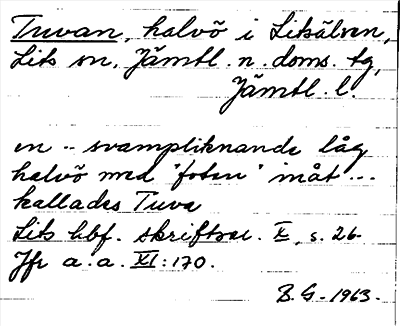 Tuvan, halvö i Litsälven,
Lits sn, Jämtl. n. doms. tg,
Jämtl. l.
en -- svampliknande låg
halvö med "foten" inåt ...
kallades Tuva
Lits hbf. skriftser. X, s. 26.
Jfr a. a. XI: 170.
B. G. 1963.